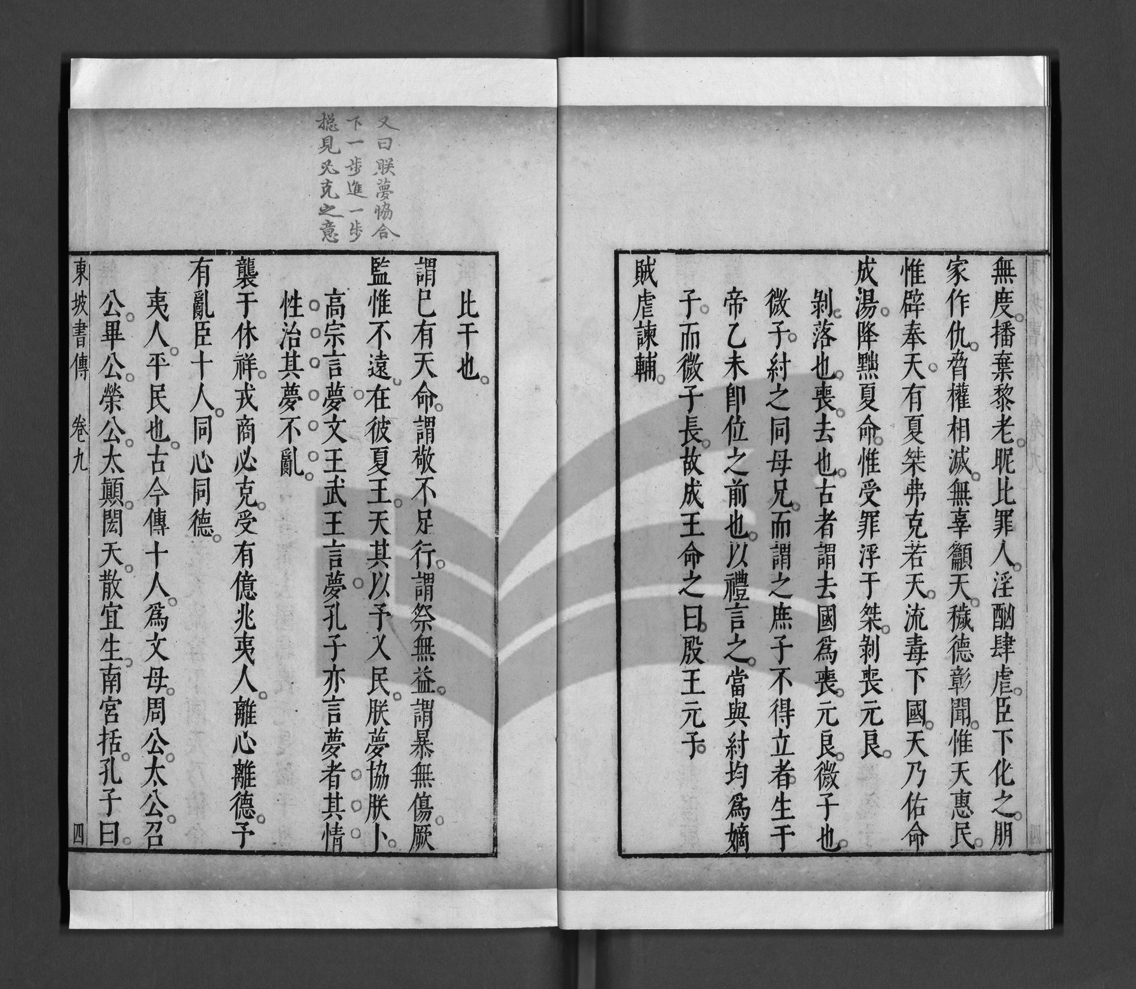 無度。播棄黎老。昵比罪人。淫酗肆虐。臣下化之。朋
家作仇。脅權相滅。無辜籲天。穢德彰聞。惟天惠民。
惟辟奉天。有夏桀弗克若天。流毒下國。天乃佑命
成湯。降黜夏命。惟受罪浮于桀。剝喪元良。
剝。落也。喪。去也。古者謂去國爲喪。元良。微子也。
微子。紂之同母兄。而謂之庶子不得立者。生于
帝乙未卽位之前也。以禮言之。當與紂均爲嫡
子。而微子長。故成王命之曰。殷王元子。
賊虐諫輔。
比干也。
謂已有天命。謂敬不足行。謂祭無益。謂暴無傷。厥
監惟不遠。在彼夏王。天其以予乂民。朕夢協朕卜。
高宗言夢。文王武王言夢。孔子亦言夢者。其情
性治。其夢不亂。
襲于休祥。戎商必克。受有億兆夷人。離心離德。予
有亂臣十人。同心同德。
夷人。平民也。古今傳十人。爲文母。周公。太公。召
公。畢公。榮公。太顛。閎夭。散宜生。南宮括。孔子曰。
東坡書傳 卷九 四
又曰朕夢協合
下一步進一步
摠見必克之意